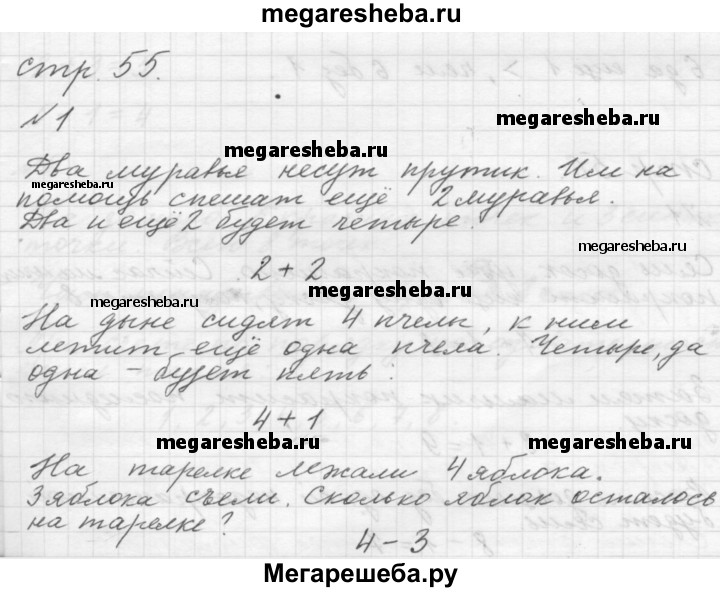 megaresheba.ru
стр. 55.
№1
megaresheba.ru
Два муравья несут прутик. Им на
megaresheba.ru
помощь спешат ещё 2 муравья.
Два и ещё 2 будет четыре.
megaresheba.ru
2 + 2
megaresheba.ru
megaresheba.ru
На дыне сидят 4 пчелы, к ним
летит ещё одна пчела. Четыре, да
одна – будет пять:
4 + 1
megaresheba.ru
megaresheba.ru
На тарелке лежали 4 яблока.
3 яблока съели. Сколько яблок осталось
на тарелке?
4 – 3
Мегарешеба.ру